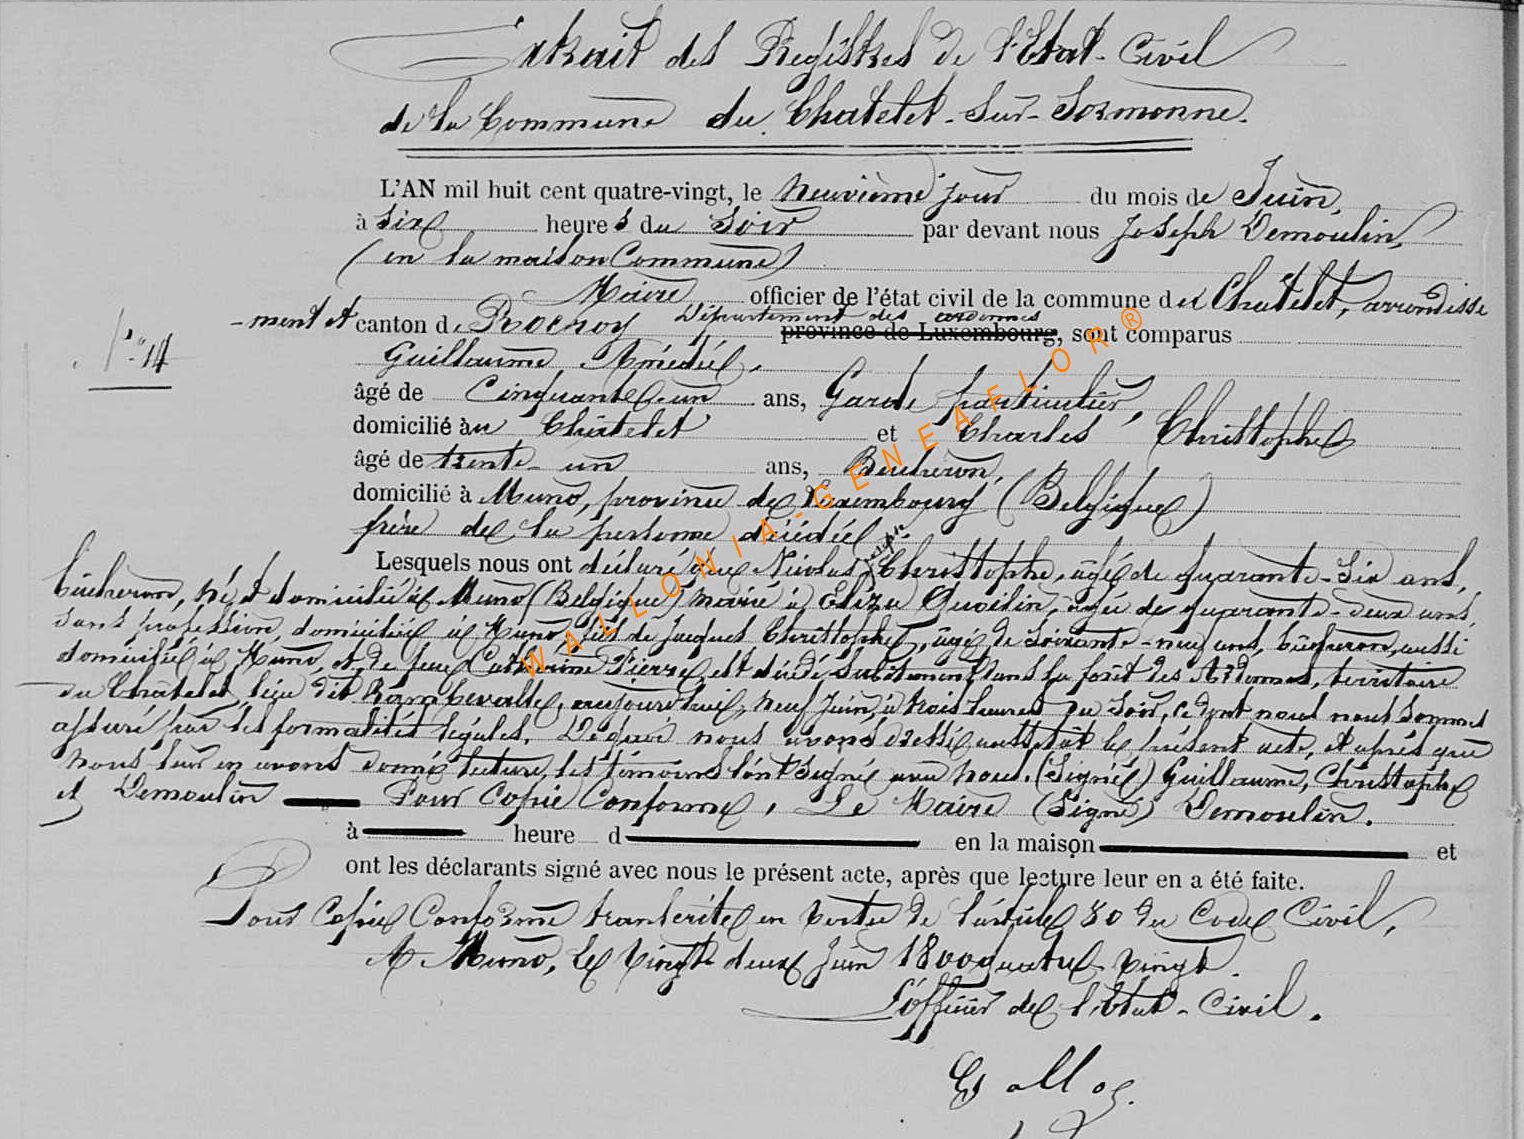 Extrait des Registres de l'Etat-Civil
de la Commune du Chatelet-Sur-Sormonne.
L'AN mil huit cent quatre-vingt, le neuvième jour du mois de Juin,
à six heures du Soir par devant nous Joseph Demoulin,
(en la maison Commune)
Maire officier de l'état civil de la commune de Chatelet, arrondisse
-ment et canton de Rocroy Département des ardennes province de Luxembourg, sont comparus
N° 14
Guillaume Amédée,
âgé de Cinquante-un ans, Garde particulier,
domicilié au Châtelet et Charles Christophe
âgé de trente-un ans, Bucheron,
domicilié à Muno, province de Luxembourg (Belgique)
frère de la personne décédée
Lesquels nous ont déclaré que Nicolas Joseph Christophe, âgé de quarante-six ans,
bucheron, né et domicilié à Muno (Belgique) marié à Eliza Quoilin, âgée de quarante-deux ans,
sans profession, domiciliée à Muno, fils de Jacques Christophe, âgé de soixante-neuf ans, bucheron, aussi
domicilié à Muno, et de feue Catherine Pierre, est décédé subitement dans la forêt des Ardennes, territoire
du Châtelet, lieu dit aujourd'hui, neuf Juin, à trois heures du Soir, ce dont nous nous sommes
assuré par les formalités légales. De quoi nous avons dressé aussitôt le présent acte, et après que
nous leur en avons donné lecture, les témoins l'ont signé avec nous. (Signé) Guillaume, Christophe
et Demoulin Pour Copie Conforme, Le Maire (Signé) Demoulin.
à heure d en la maison et
ont les déclarants signé avec nous le présent acte, après que lecture leur en a été faite.
Pour Copie Conforme transcrite en vertu de l'article 80 du Code Civil,
A Muno, le vingt deux Juin 1800 quatre-vingt.
L'officier de l'Etat-Civil.
WALLONIA-GENEALOR®